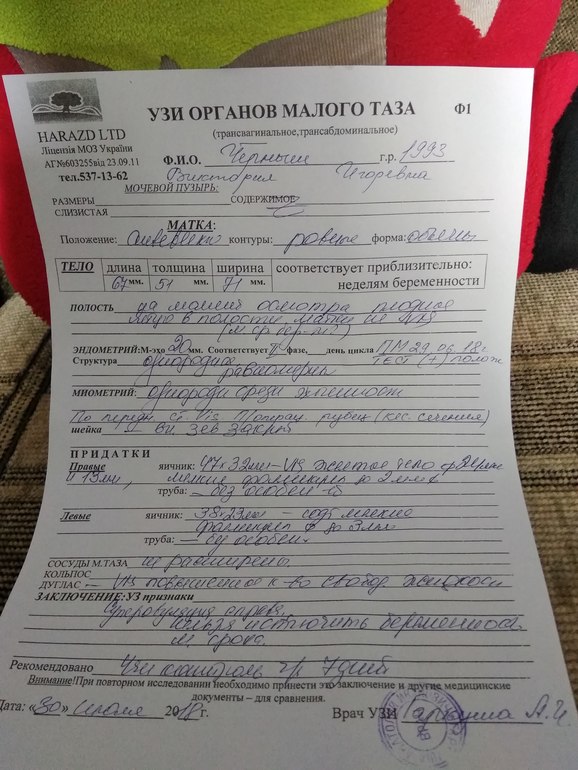 УЗИ ОРГАНОВ МАЛОГО ТАЗА Ф1
(трансвагинальное,трансабдоминальное)
HARAZD LTD
Ліцензія МОЗ України
АГ№603255від 23.09.11
тел.537-13-62
Ф.И.О. Черныш г.р. 1993
Виктория Игоревна
МОЧЕВОЙ ПУЗЫРЬ:
РАЗМЕРЫ СОДЕРЖИМОЕ
СЛИЗИСТАЯ
МАТКА:
Положение: контуры: ровные форма: обычн
ТЕЛО длина толщина ширина соответствует приблизительно:
67 мм. 51 мм. 71 мм. неделям беременности
ПОЛОСТЬ на момент осмотра плодное
яйцо в полости матки не
ЭНДОМЕТРИЙ:М-эхо 20 мм. Соответствует II фазе, день цикла ПМ 29.06.18г
Структура однородная тест (+) полож
МИОМЕТРИЙ: однороди средн эхогенност
По передн рубец (кес. сечения)
шейка зев закрыт
ПРИДАТКИ
Правые яичник: 47х32мм - желтое тело
13мм, мелкие фолликулы до 2мм
труба: без особен
Левые яичник: 38х23мм - мелкие
фолликулы до 3мм
труба: без особен
СОСУДЫ М.ТАЗА не расширены
КОЛЬПОС
ДУГЛАС к-во свобод жидкости
ЗАКЛЮЧЕНИЕ:УЗ признаки
нельзя исключить беременность
м. срока.
Рекомендовано Узи контроль ч/з 7 дней
Внимание!При повторном исследовании необходимо принести это заключение и другие медицинские
документы – для сравнения.
Дата: «30» июля 2018г. Врач УЗИ А.И